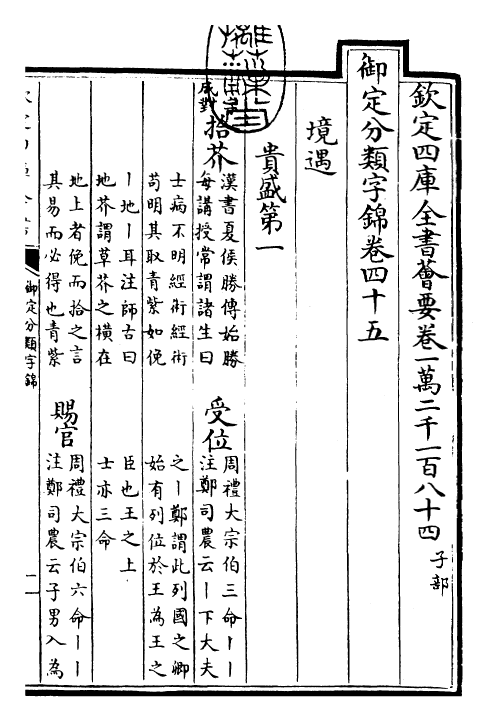 欽定四庫全書薈要卷一萬二千一百八十四 子部
御定分類字錦卷四十五
境遇
貴盛第一
成對
拾芥
漢書夏侯勝傳始勝
每講授常謂諸生曰
士病不明經術經術
苟明其取青紫如俛
丨地丨耳注師古曰
地芥謂草芥之横在
地上者俛而拾之言
其易而必得也青紫
受位
周禮大宗伯三命丨丨
注鄭司農云丨下大夫
之丨鄭謂此列國之卿
始有列位於王為王之
臣也王之上
士亦三命
賜官
周禮大宗伯六命丨丨
注鄭司農云子男入為
御定分類字錦